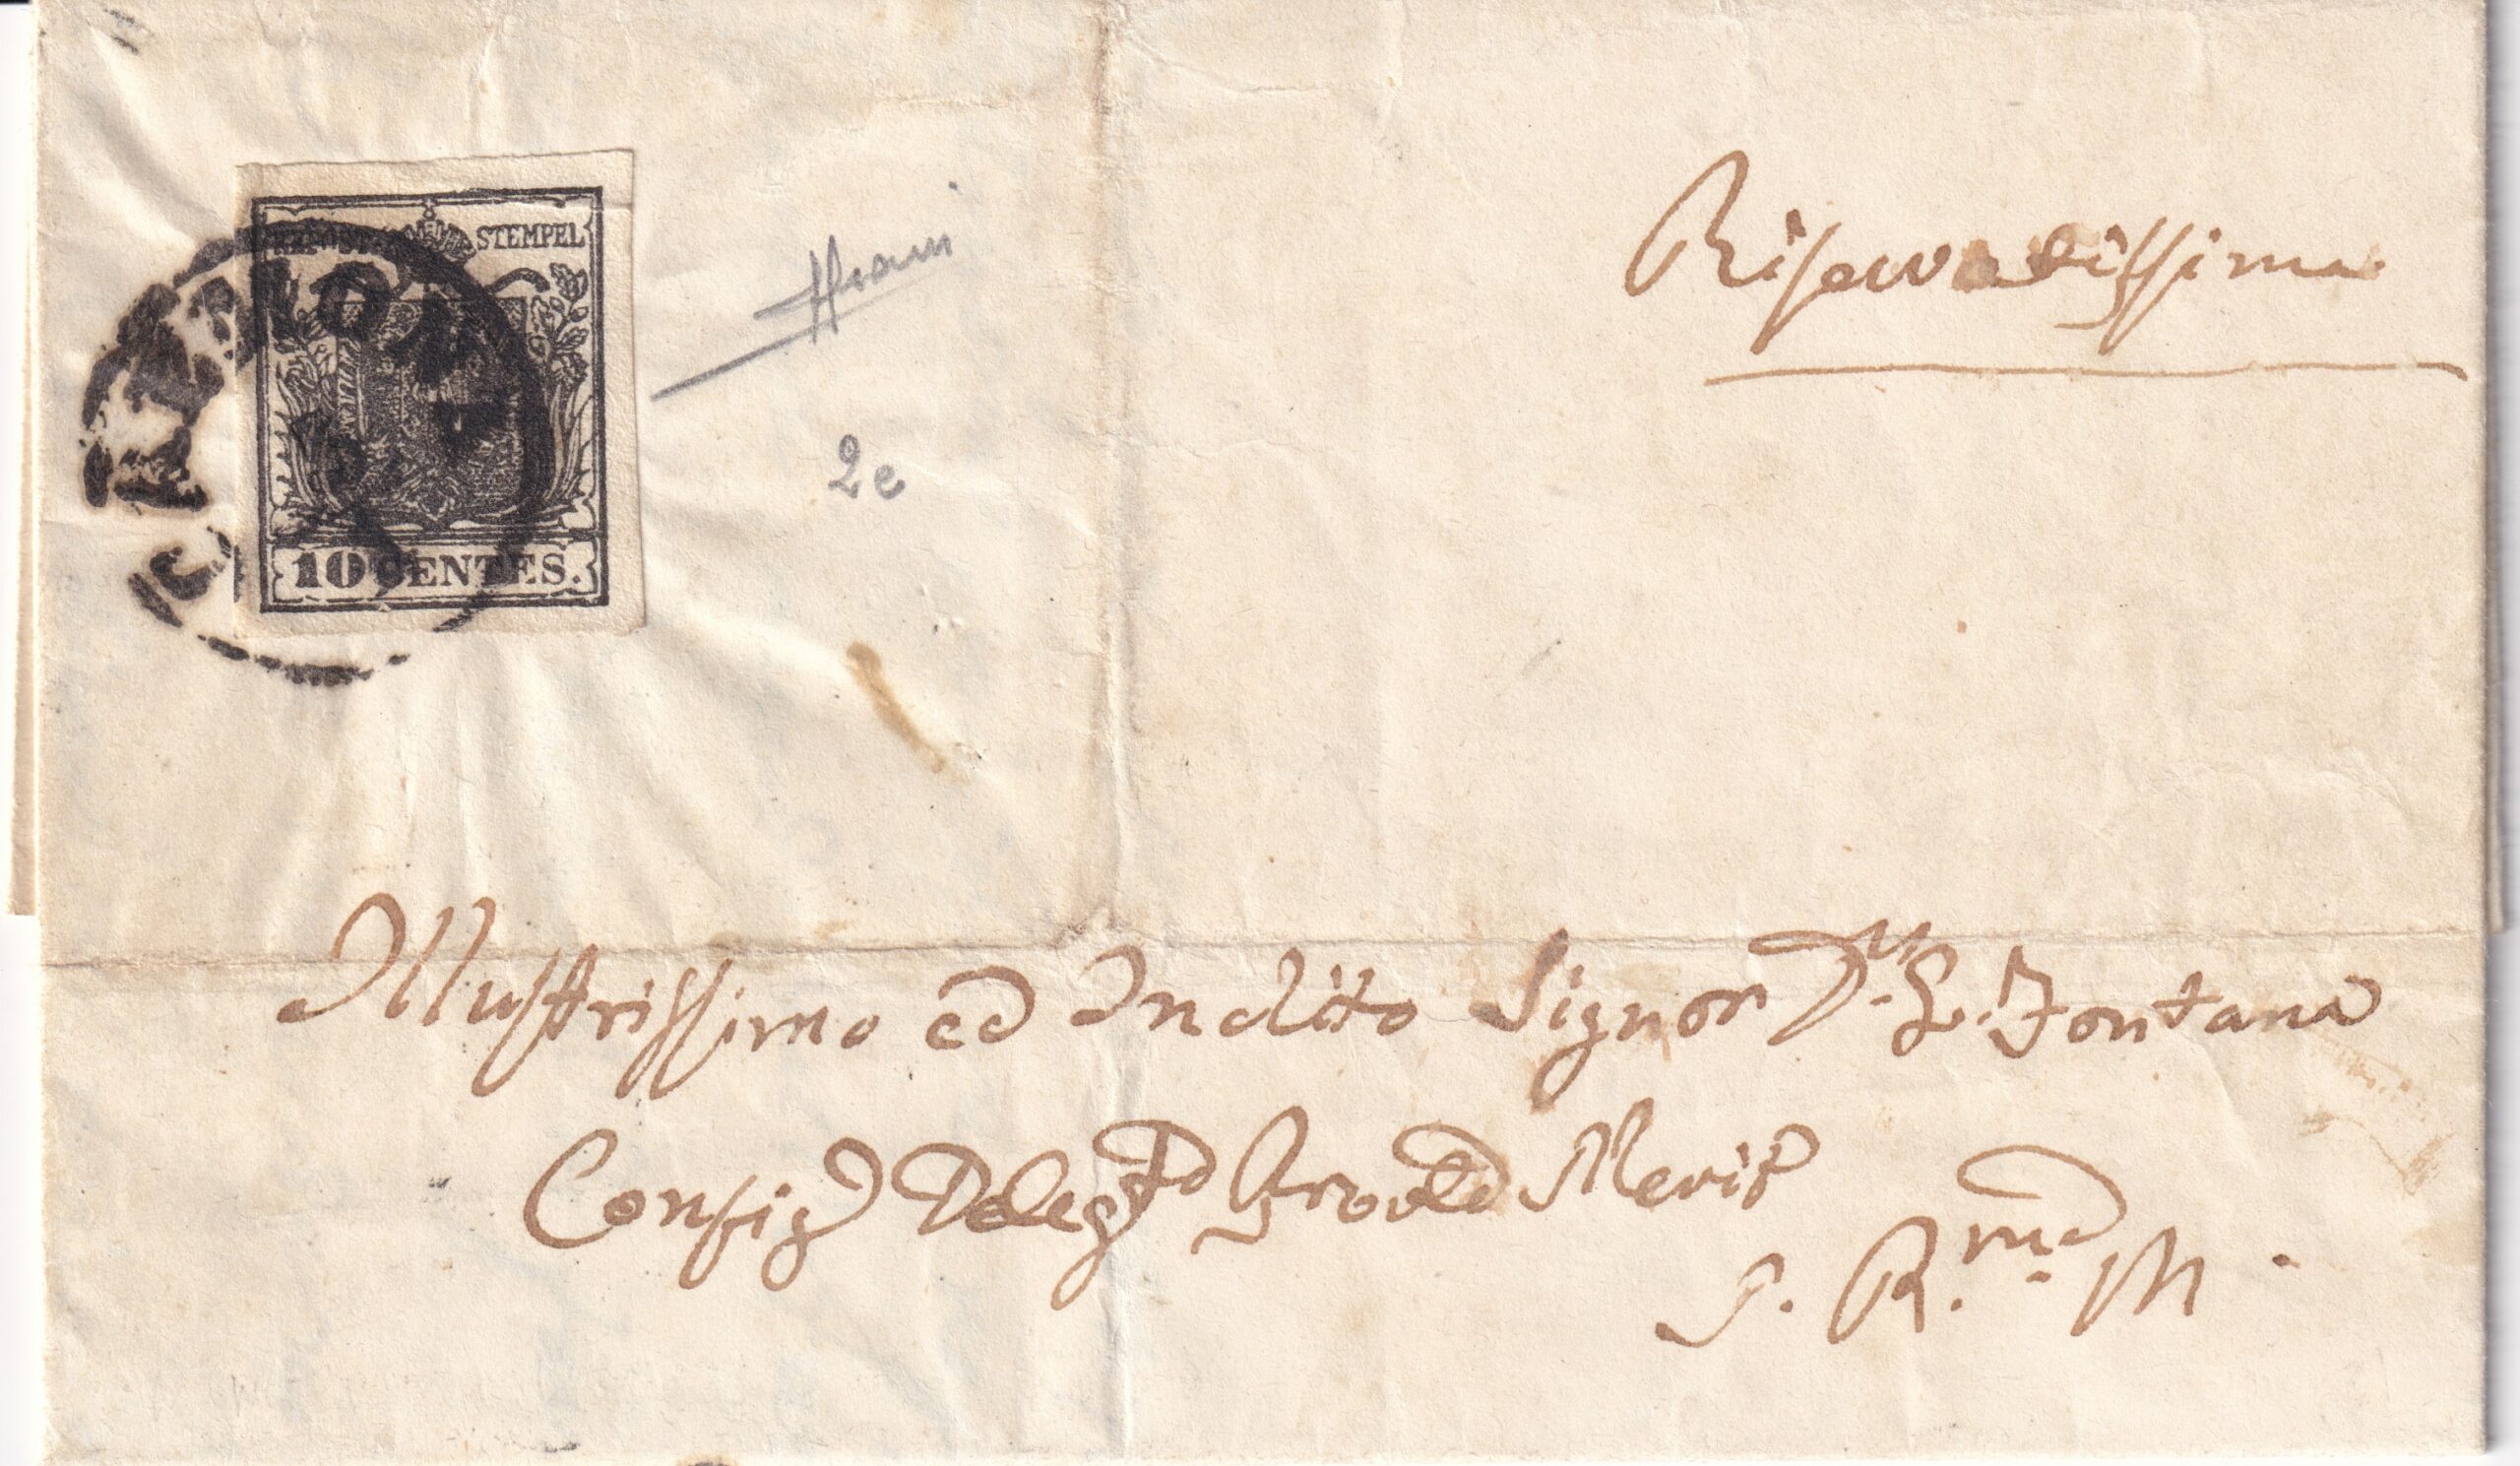 STEMPEL
10 CENTES.
2e
Riservatissima
Illustrissimo ed Inclito Signor Dr. L. Fontana
Consig Deleg Prov Merit
S. R.ma M.